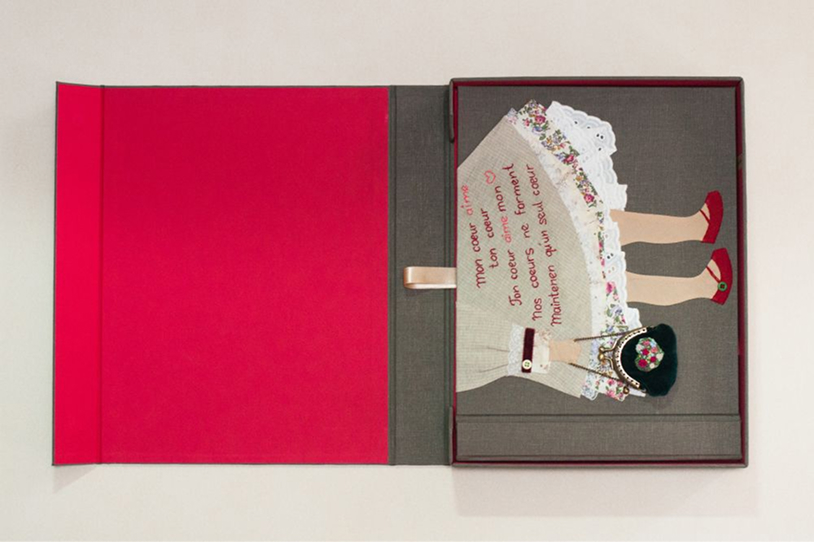 Mon coeur aime
ton coeur
Ton coeur aime mon ♡
Nos coeurs ne forment
Maintenen qu'un seul coeur